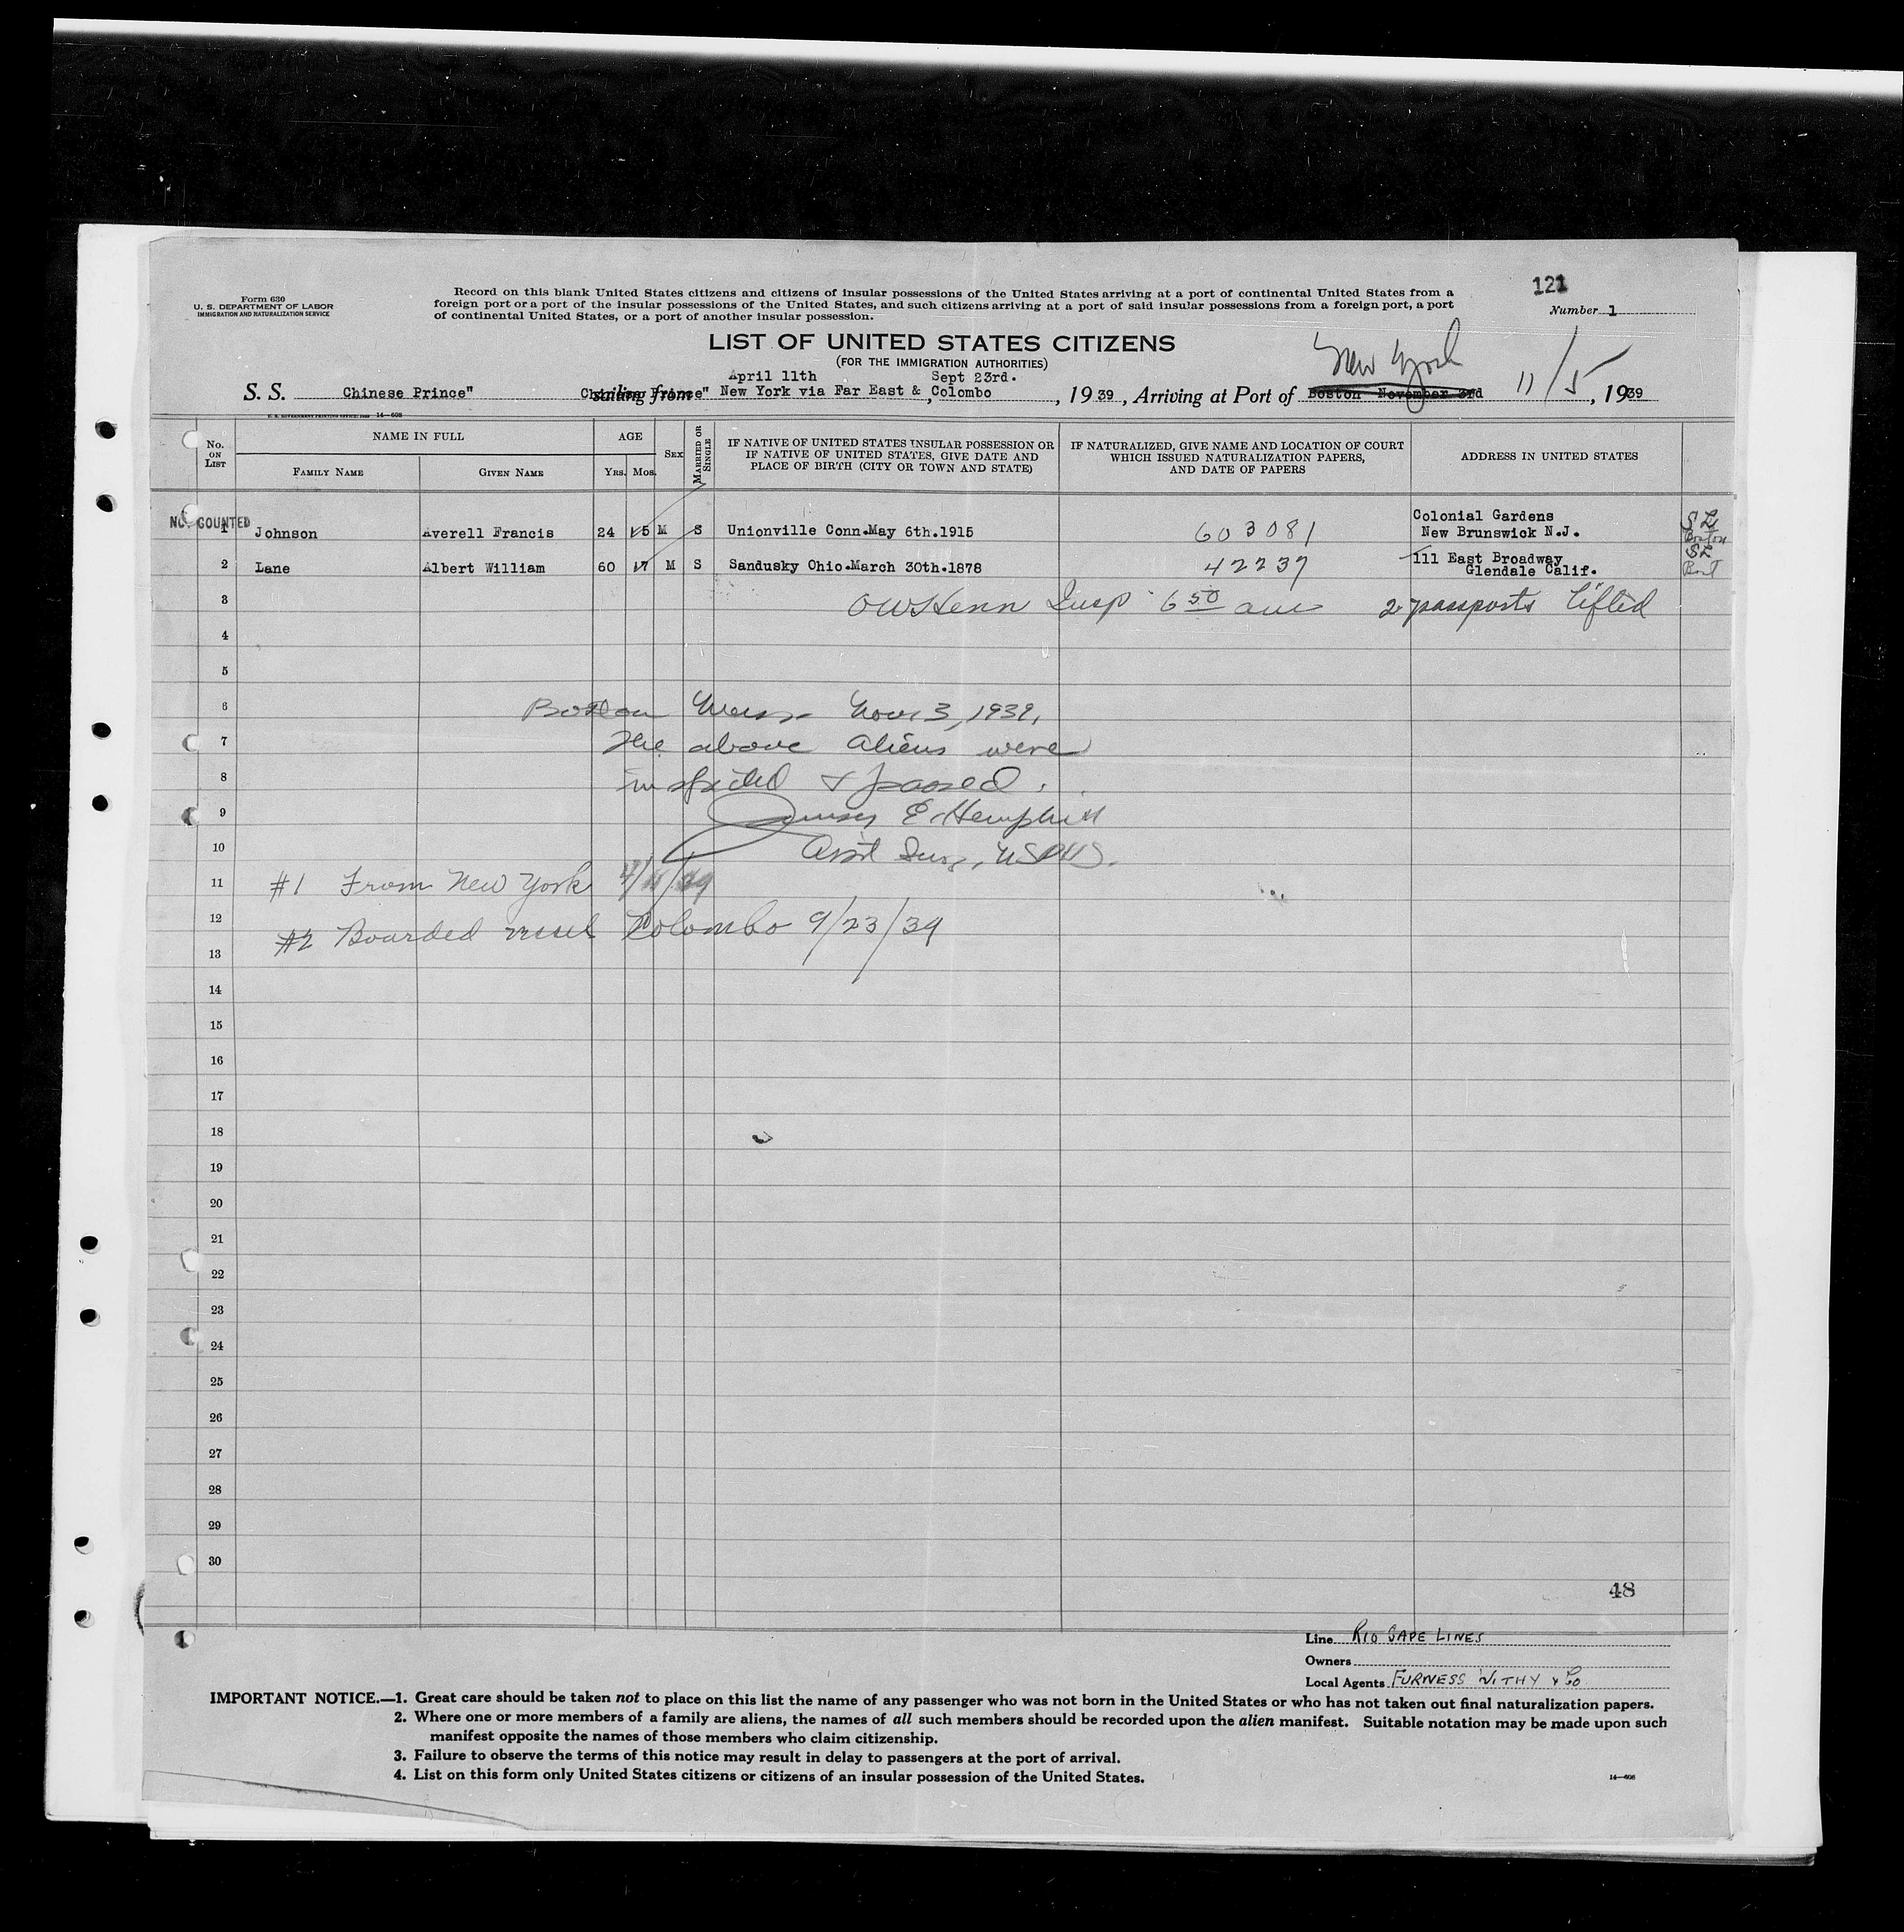 121
Form 630
U. S. DEPARTMENT OF LABOR
IMMIGRATION AND NATURALIZATION SERVICE
Record on this blank United States citizens and citizens of insular possessions of the United States arriving at a port of continental United States from a
foreign port or a port of the insular possessions of the United States, and such citizens arriving at a port of said insular possessions from a foreign port, a port
of continental United States, or a port of another insular possession.
Number 1
LIST OF UNITED STATES CITIZENS
(FOR THE IMMIGRATION AUTHORITIES)
New York
April 11th Sept 23rd.
S. S. Chinese Prince" sailing from New York via Far East & Colombo, 1939, Arriving at Port of Boston November 3rd 11/5, 1939
U. S. GOVERNMENT PRINTING OFFICE: 14—608
No. ON LIST
NAME IN FULL
FAMILY NAME
GIVEN NAME
AGE
Yrs. Mos.
SEX
MARRIED OR SINGLE
IF NATIVE OF UNITED STATES INSULAR POSSESSION OR
IF NATIVE OF UNITED STATES, GIVE DATE AND
PLACE OF BIRTH (CITY OR TOWN AND STATE)
IF NATURALIZED, GIVE NAME AND LOCATION OF COURT
WHICH ISSUED NATURALIZATION PAPERS,
AND DATE OF PAPERS
ADDRESS IN UNITED STATES
NO. COUNTED
1 Johnson Averell Francis 24 5 M S Unionville Conn.May 6th.1915 603081 Colonial Gardens
New Brunswick N.J. Boston
2 Lane Albert William 60 7 M S Sandusky Ohio.March 30th.1878 42237 111 East Broadway
Glendale Calif.
3 Insp 6 50 am 2 passports lifted
4
5
6 Boston Mass Nov 3, 1939,
7 The above aliens were
8 inspected & passed.
9 James E. Hemphill
10 Asst Surg, USPHS.
11 #1 From New York 4/11/39
12 #2 Boarded vessel Colombo 9/23/39
13
14
15
16
17
18
19
20
21
22
23
24
25
26
27
28
29
30
48
Line Rio Cape Lines
Owners
Local Agents Furness Withy & Co
IMPORTANT NOTICE.—1. Great care should be taken not to place on this list the name of any passenger who was not born in the United States or who has not taken out final naturalization papers.
2. Where one or more members of a family are aliens, the names of all such members should be recorded upon the alien manifest. Suitable notation may be made upon such
manifest opposite the names of those members who claim citizenship.
3. Failure to observe the terms of this notice may result in delay to passengers at the port of arrival.
4. List on this form only United States citizens or citizens of an insular possession of the United States.
14—608